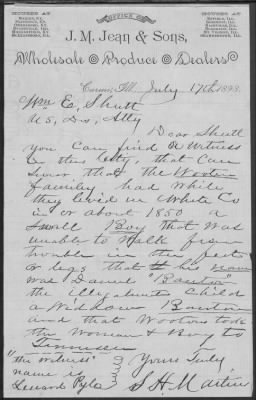 HOUSES AT
OFFICE OF
HOUSES AT
J. M. Jean & Sons,
Wholesale Produce Dealers
Carmi, Ill. July 17th 1898.
Wm E. Shutt
U.S. Dis. Atty
Dear Shutt
you can find a witness
in this City, that can
swear that the Wooten
family had while
they lived in White Co
in or about 1850 a
small Boy that was
unable to walk from
trouble in the feet
or legs that his name
was Daniel "Banton"
the illegitimate child
a Widdow Banton
and that Wootens took
the Woman & Boy to
Tennessee
"the witness"
name is
Lenard Pyle
Yours Truly
S. H. Martin